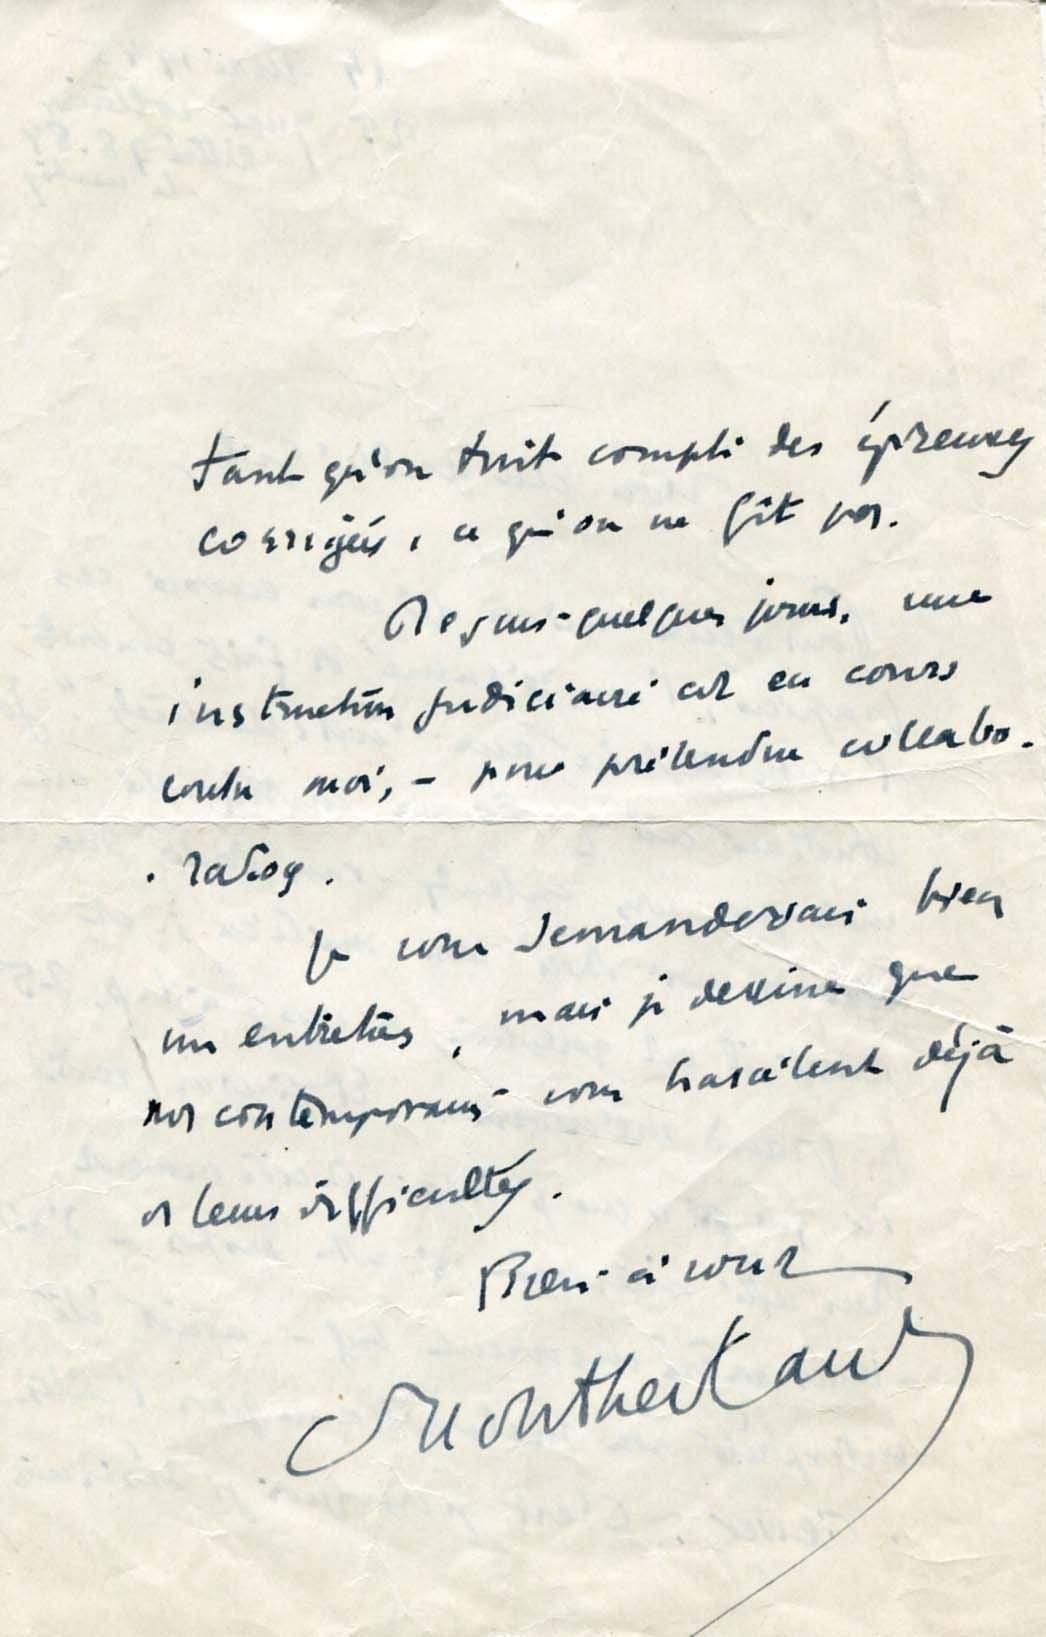 tant qu'on tînt compte des épreuves
corrigées, ce qu'on ne fît pas.
Depuis quelques jours, une
instruction judiciaire est en cours
contre moi, – pour prétendue collabo-
-ration.
Je vous demanderais bien
un entretien, mais je devine que
nos contemporains vous harcèlent déjà
de leurs difficultés.
Bien à vous
Montherlant